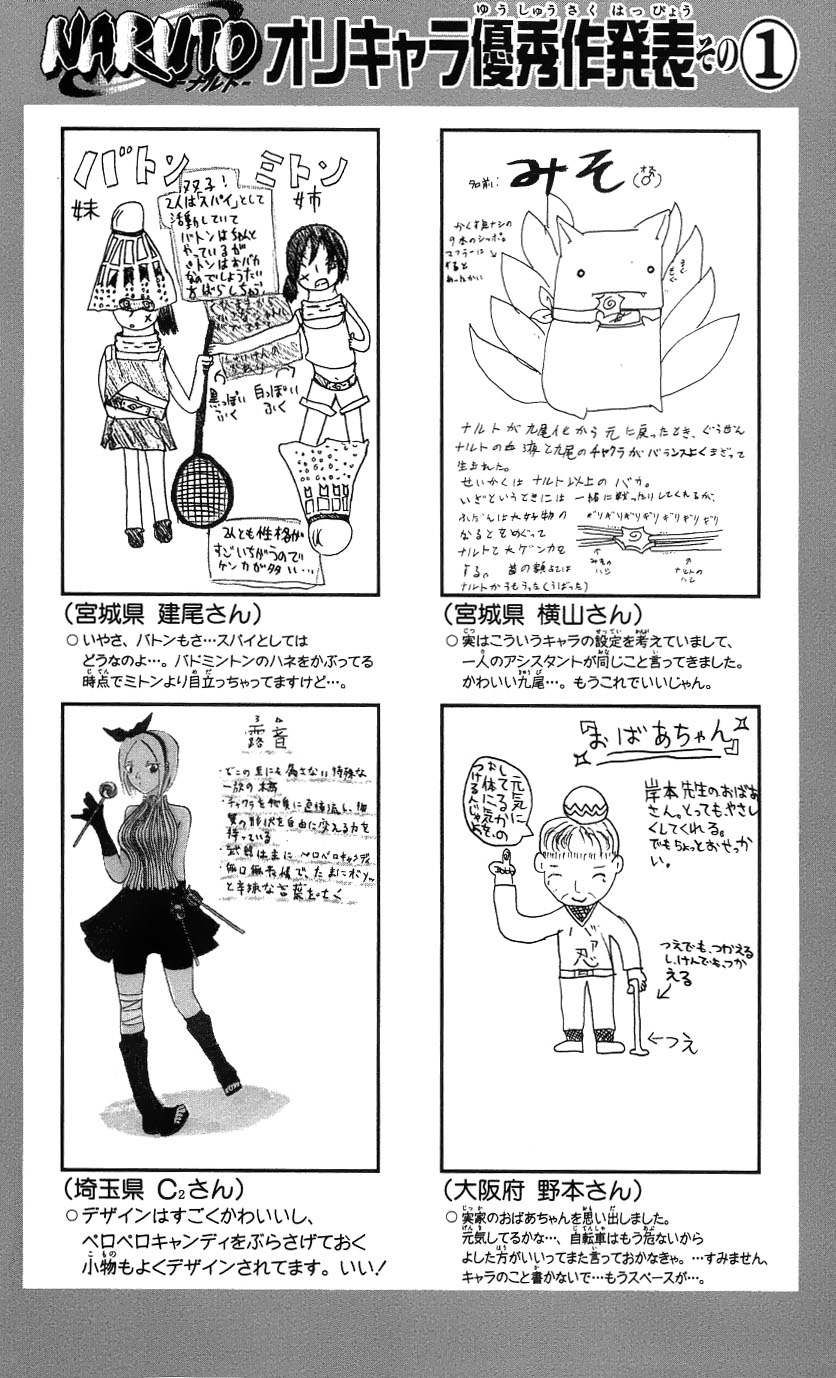 NARUTO
-ナルト-
ゆうしゅうさくはっぴょう
オリキャラ優秀作発表その①
バトン
ミトン
妹
姉
双子!
2人は「スパイ」として
活動していて
バトンはちゃんと
やっているが
ミトンはおバカ
なのでしょうたい
をばらしちゃう
黒っぽい
ふく
白っぽい
ふく
2人とも性格が
すごいちがうので
ケンカが多い…
(宮城県 建尾さん)
○いやさ、バトンもさ…スパイとしては
どうなのよ…。バドミントンのハネをかぶってる
時点でミトンより目立っちゃってますけど…。
名前:みそ(♂)
オス
かくす気ナシの
9本のシッポ。
マフラーに
すると
あったかい
ナルトが九尾化から元に戻ったとき、ぐうぜん
ナルトの血液と九尾のチャクラがバランスよくまざって
生まれた。
せいかくはナルト以上のバカ。
いざというときには一緒に戦ったりしてくれるが、
ふだんは大好物の
なるとをめぐって
ナルトと大ゲンカを
する。首の額あては
ナルトからもらった(うばった)
ギリギリギリギリギリギリギリ
みその
ハシ
ナルトの
ハシ
(宮城県 横山さん)
○実はこういうキャラの設定を考えていまして、
一人のアシスタントが同じこと言ってきました。
かわいい九尾…。もうこれでいいじゃん。
露音
・どこの里にも属さない特殊な
一族の末裔
・チャクラを物質に直接流し、物
質の形状を自由に変える力を
持っている
・武器は主にペロペロキャンディ
・無口無表情で、たまにボソッ
と辛辣な言葉を吐く
(埼玉県 C₂さん)
○デザインはすごくかわいいし、
ペロペロキャンディをぶらさげておく
小物もよくデザインされてます。いい!
『おばあちゃん』
元気に
してるかの
お体に気を
つけるんじゃよ
岸本先生のおばあ
さん。とっても、やさし
くしてくれる。
でもちょっとおせっか
い。
忍
つえでも、つかえる
し、けんでも、つか
える
←つえ
(大阪府 野本さん)
○実家のおばあちゃんを思い出しました。
元気してるかな…、自転車はもう危ないから
よした方がいいってまた言っておかなきゃ。…すみません、
キャラのこと書かないで…もうスペースが…。